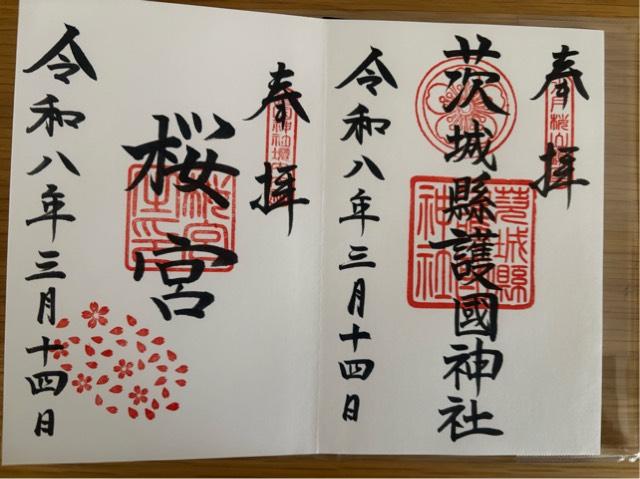 奉拝
茨城縣護國神社
令和八年三月十四日
奉拝
桜宮
令和八年三月十四日
茨城縣
神社